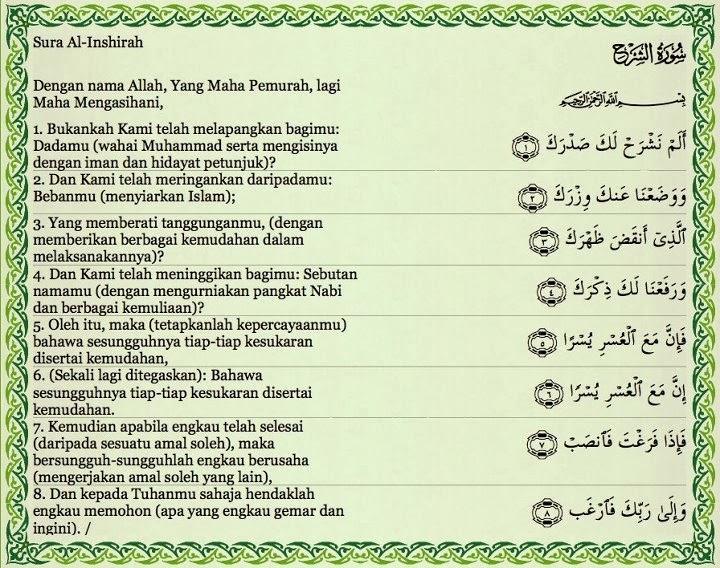 Sura Al-Inshirah
سُورَةُ الشَّرْحِ
Dengan nama Allah, Yang Maha Pemurah, lagi
Maha Mengasihani,
بِسْمِ اللَّهِ الرَّحْمَٰنِ الرَّحِيمِ
1. Bukankah Kami telah melapangkan bagimu:
Dadamu (wahai Muhammad serta mengisinya
dengan iman dan hidayat petunjuk)?
أَلَمْ نَشْرَحْ لَكَ صَدْرَكَ ١
2. Dan Kami telah meringankan daripadamu:
Bebanmu (menyiarkan Islam);
وَوَضَعْنَا عَنكَ وِزْرَكَ ٢
3. Yang memberati tanggunganmu, (dengan
memberikan berbagai kemudahan dalam
melaksanakannya)?
ٱلَّذِىٓ أَنقَضَ ظَهْرَكَ ٣
4. Dan Kami telah meninggikan bagimu: Sebutan
namamu (dengan mengurniakan pangkat Nabi
dan berbagai kemuliaan)?
وَرَفَعْنَا لَكَ ذِكْرَكَ ٤
5. Oleh itu, maka (tetapkanlah kepercayaanmu)
bahawa sesungguhnya tiap-tiap kesukaran
disertai kemudahan,
فَإِنَّ مَعَ ٱلْعُسْرِ يُسْرًا ٥
6. (Sekali lagi ditegaskan): Bahawa
sesungguhnya tiap-tiap kesukaran disertai
kemudahan.
إِنَّ مَعَ ٱلْعُسْرِ يُسْرًا ٦
7. Kemudian apabila engkau telah selesai
(daripada sesuatu amal soleh), maka
bersungguh-sungguhlah engkau berusaha
(mengerjakan amal soleh yang lain),
فَإِذَا فَرَغْتَ فَٱنصَبْ ٧
8. Dan kepada Tuhanmu sahaja hendaklah
engkau memohon (apa yang engkau gemar dan
ingini). /
وَإِلَىٰ رَبِّكَ فَٱرْغَب ٨